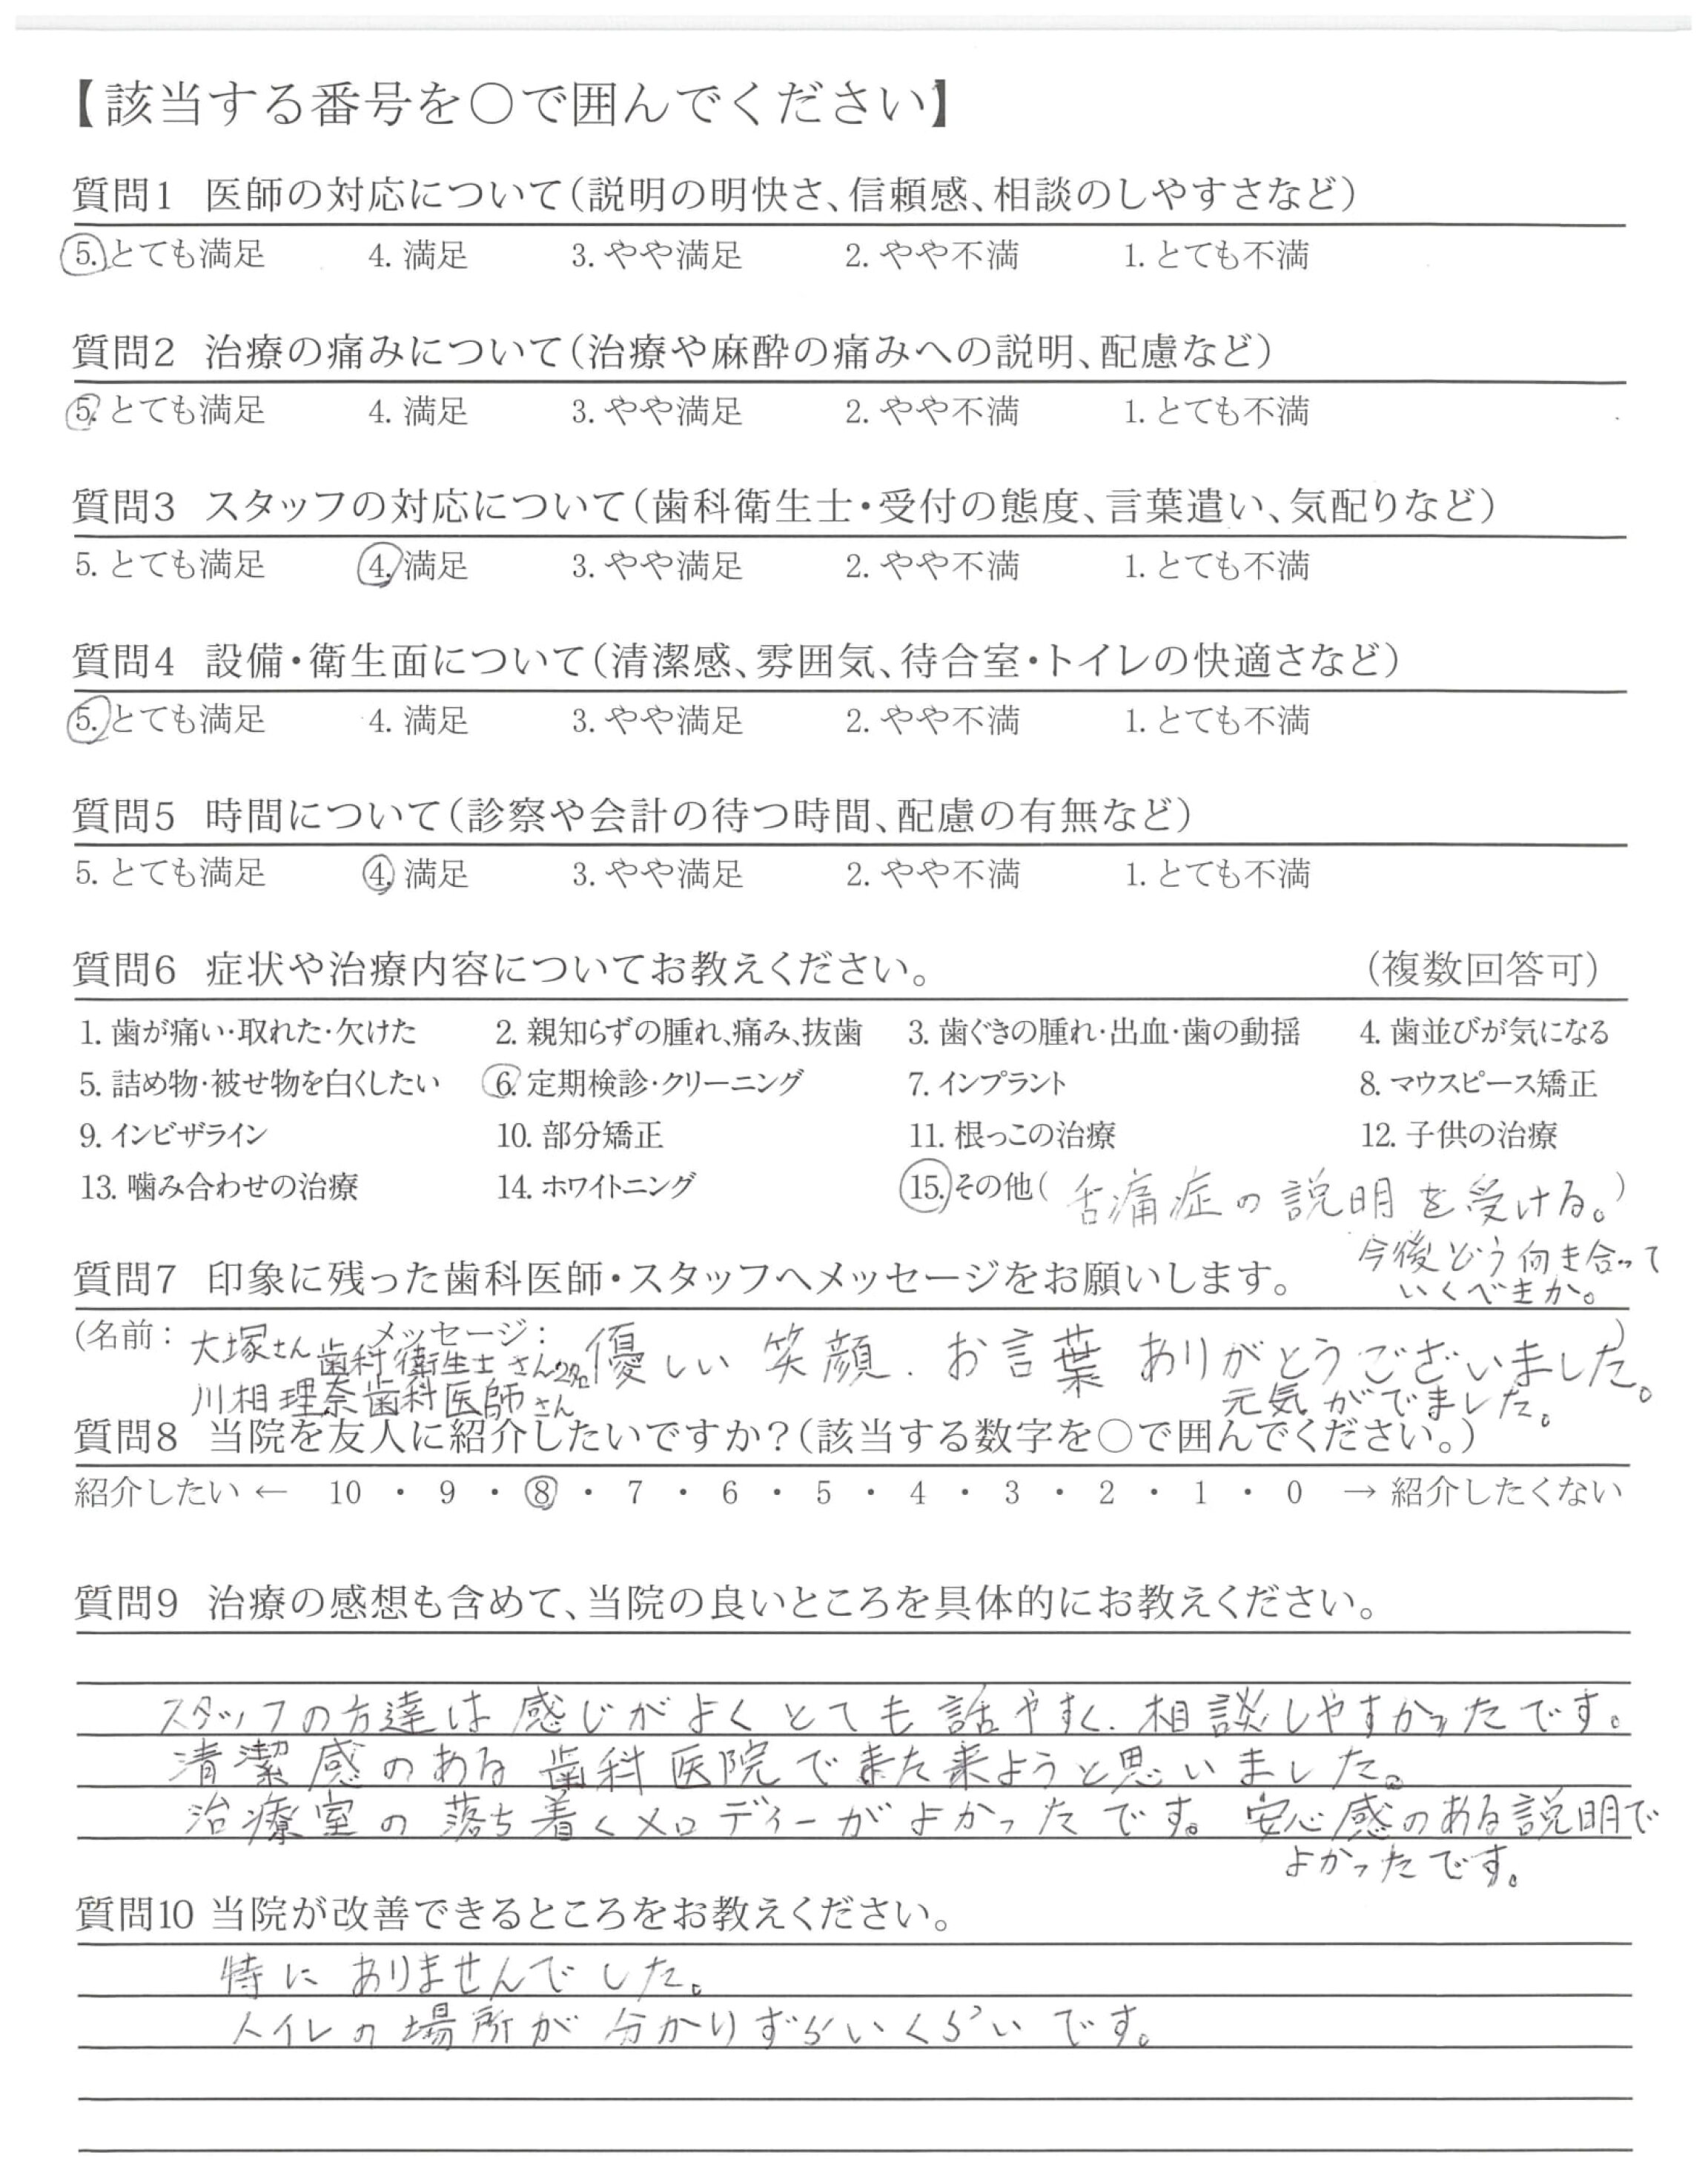 【該当する番号を○で囲んでください】
質問1 医師の対応について（説明の明快さ、信頼感、相談のしやすさなど）
5. とても満足 4. 満足 3. やや満足 2. やや不満 1. とても不満
質問2 治療の痛みについて（治療や麻酔の痛みへの説明、配慮など）
5. とても満足 4. 満足 3. やや満足 2. やや不満 1. とても不満
質問3 スタッフの対応について（歯科衛生士・受付の態度、言葉遣い、気配りなど）
5. とても満足 4. 満足 3. やや満足 2. やや不満 1. とても不満
質問4 設備・衛生面について（清潔感、雰囲気、待合室・トイレの快適さなど）
5. とても満足 4. 満足 3. やや満足 2. やや不満 1. とても不満
質問5 時間について（診察や会計の待つ時間、配慮の有無など）
5. とても満足 4. 満足 3. やや満足 2. やや不満 1. とても不満
質問6 症状や治療内容についてお教えください。 （複数回答可）
1. 歯が痛い・取れた・欠けた 2. 親知らずの腫れ、痛み、抜歯 3. 歯ぐきの腫れ・出血・歯の動揺 4. 歯並びが気になる
5. 詰め物・被せ物を白くしたい 6. 定期検診・クリーニング 7. インプラント 8. マウスピース矯正
9. インビザライン 10. 部分矯正 11. 根っこの治療 12. 子供の治療
13. 噛み合わせの治療 14. ホワイトニング 15. その他（ 舌痛症の説明を受ける。）
今後どう向き合って
いくべきか。
質問7 印象に残った歯科医師・スタッフへメッセージをお願いします。
（名前： 大塚さん 歯科衛生士さん2名 メッセージ： 優しい笑顔．お言葉ありがとうございました。）
川相理奈歯科医師さん 元気がでました。
質問8 当院を友人に紹介したいですか？（該当する数字を○で囲んでください。）
紹介したい ← 10 ・ 9 ・ 8 ・ 7 ・ 6 ・ 5 ・ 4 ・ 3 ・ 2 ・ 1 ・ 0 → 紹介したくない
質問9 治療の感想も含めて、当院の良いところを具体的にお教えください。
スタッフの方達は感じがよくとても話やすく．相談しやすかったです。
清潔感のある歯科医院でまた来ようと思いました。
治療室の落ち着くメロディーがよかったです。安心感のある説明で
よかったです。
質問10 当院が改善できるところをお教えください。
特にありませんでした。
トイレの場所が分かりずらいくらいです。